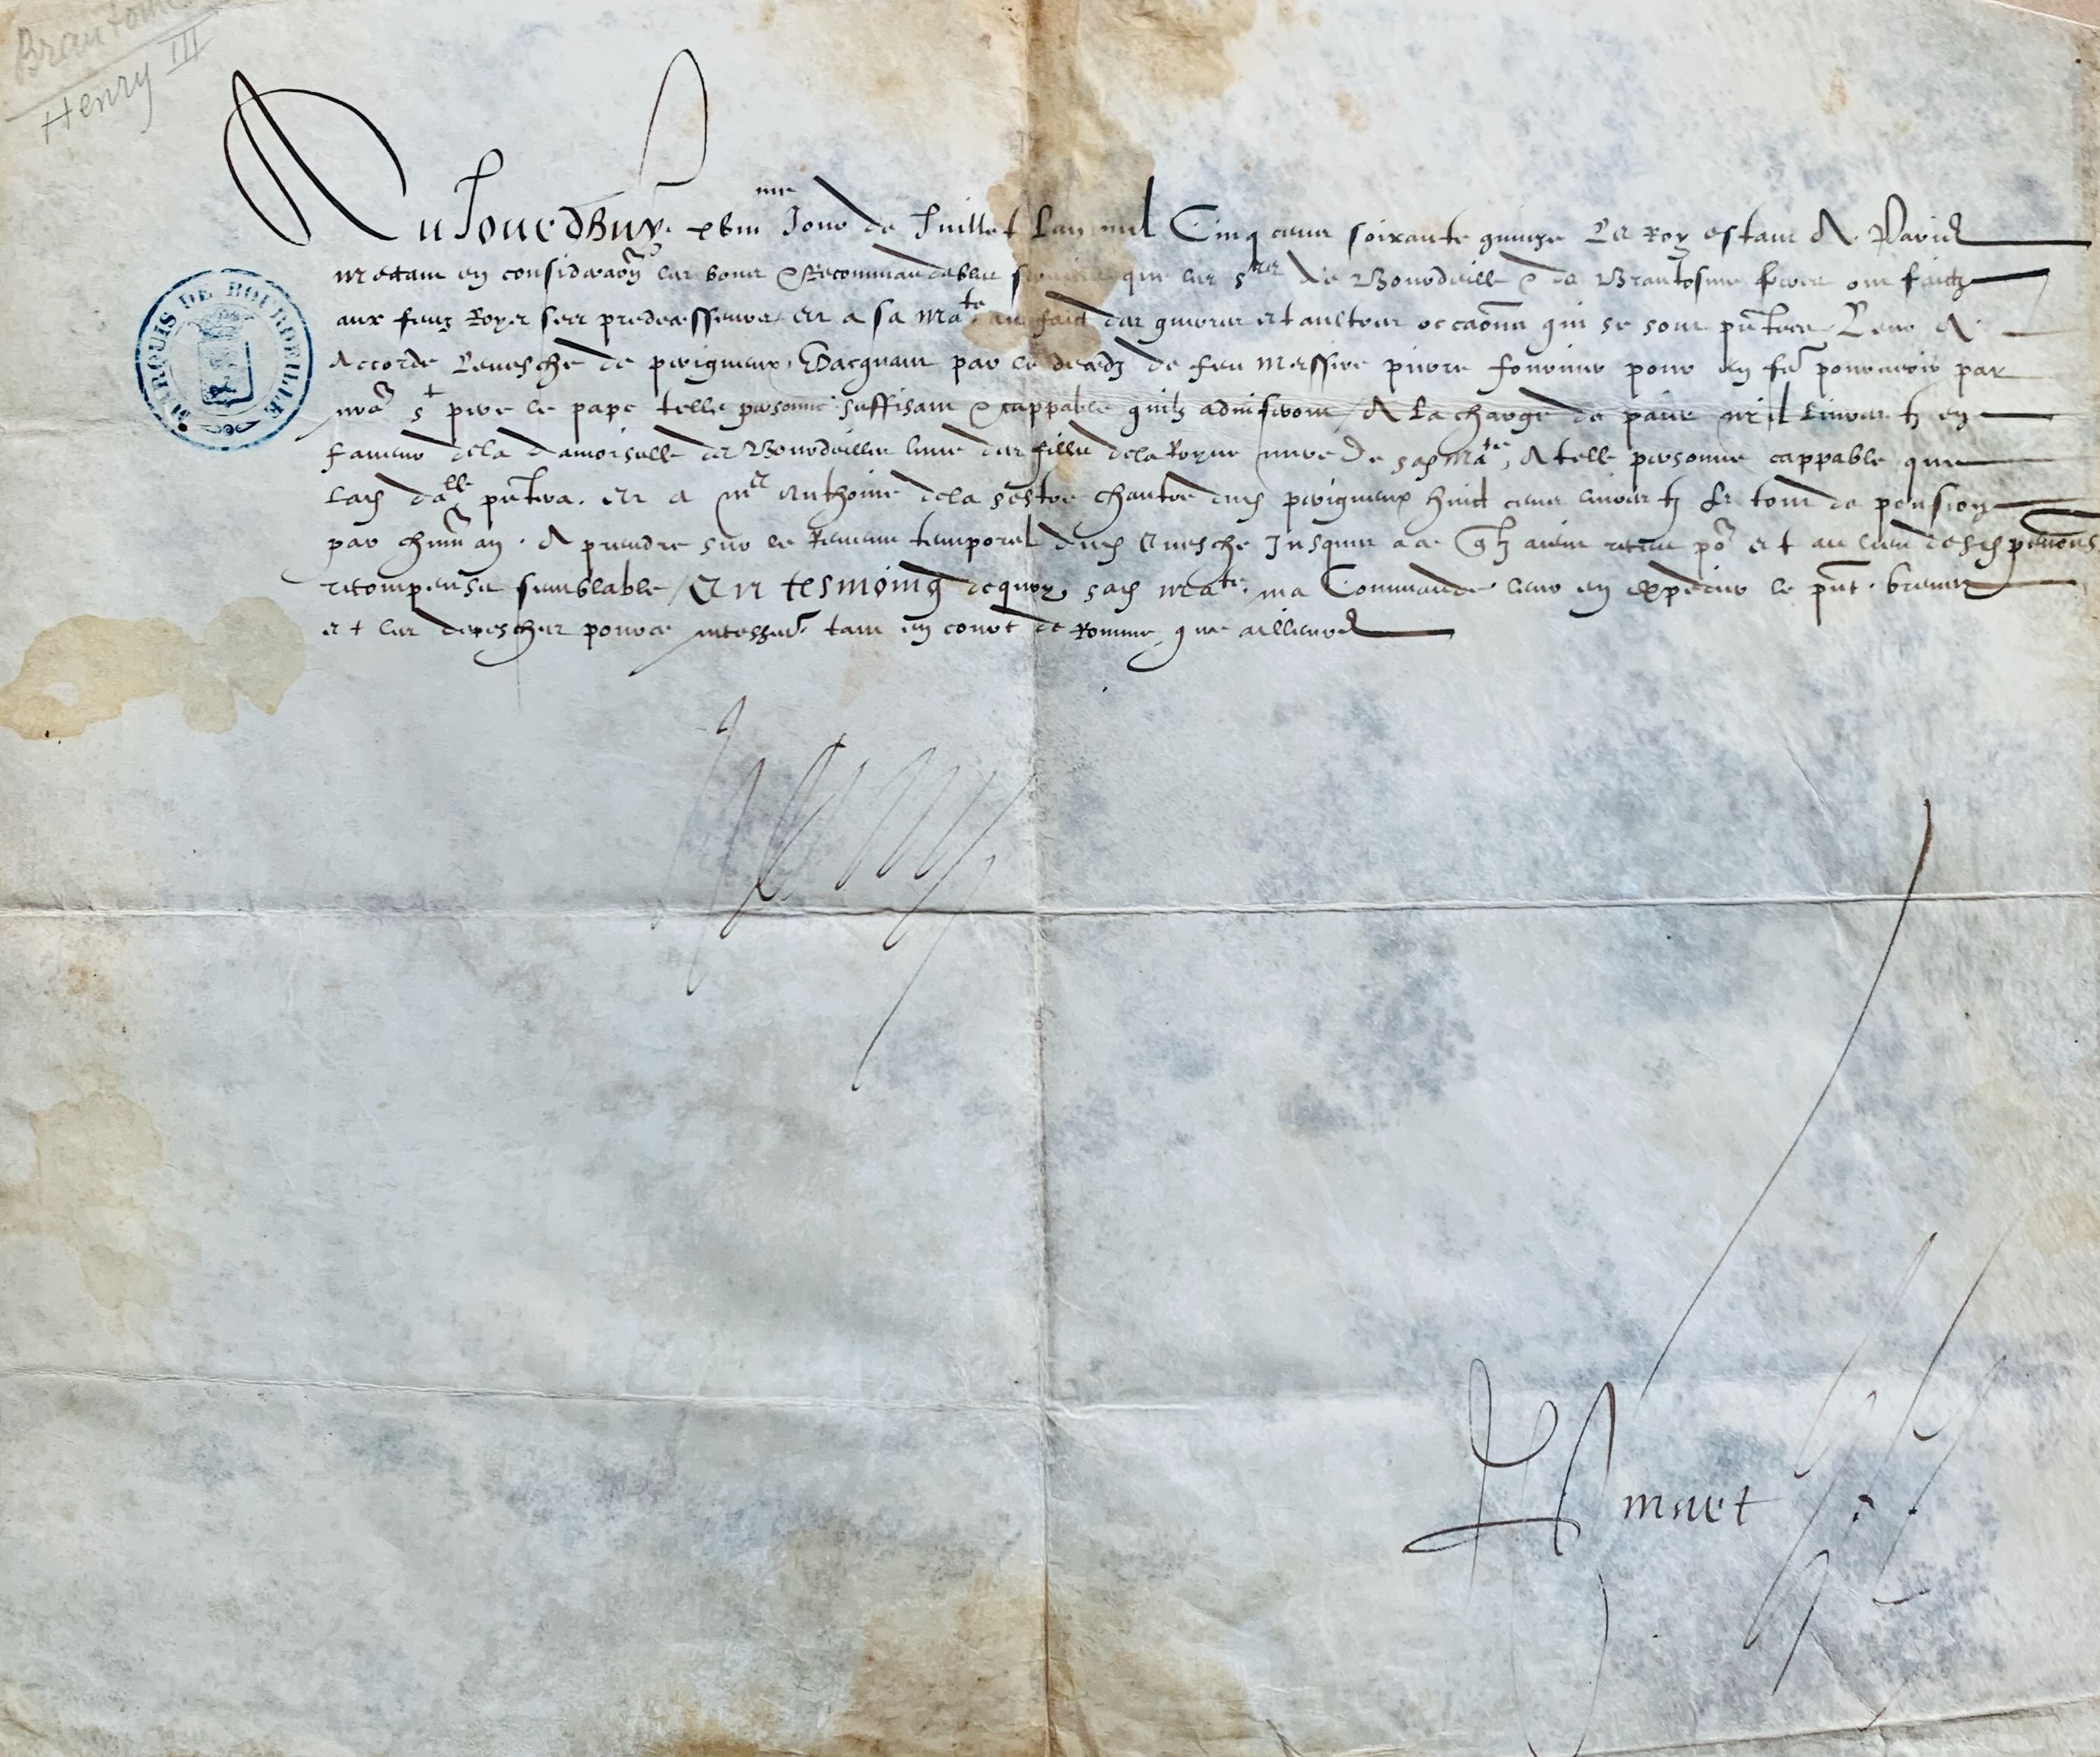 Brantome
Henry III
MARQUIS DE BOURDEILLE
Aujourdhuy xviii^me Jour de Juillet Lan mil Cinq cens soixante quinze Le Roy estant A Paris
mettant en consideraõn les bons & Recommandables services que les s^rs de Bourdeille & de Brantosme freres ont faictz
aux feuz Roys ses predecesseurs et a sa ma^te au faict des guerres et aultres occaõns qui se sont pñtees Leur A
Accorde Levesche de perigueux Vacquant par le deceds de feu messire pierre fournier pour en fẽ pourveoir par
nrẽ s^t pere le pape telle personne suffisant & cappable quilz adviseront A La charge de paier mil Livres tz en
faveur de la damoiselle de Bourdeille lune des filles de la Royne mere De sad Ma^te, A telle personne cappable que
lad da^lle pñtera. et a m^e Anthoine de la dud perigueux huict cens livres tz de pension
par chũn an. A prendre sur le Revenu temporel dud Evesche Jusques a ce qlz aient receu põ et au lieu desd pensions
recompense semblable / En tesmoing dequoy sad ma^te ma Commande leur en expedier le pñt brevet
et les depesches pource necessẽs tant en court de Romme que ailleurs
Henry